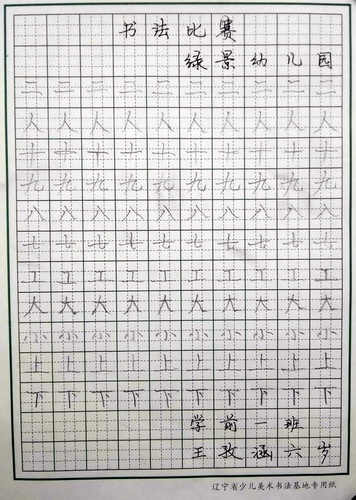 书法比赛
绿景幼儿园
二二二二二二二二二二
人人人人人人人人人人
十十十十十十十十十十
九九九九九九九九九九
八八八八八八八八八八
七七七七七七七七七七
工工工工工工工工工工
大大大大大大大大大大
小小小小小小小小小小
上上上上上上上上上上
下下下下下下下下下下
学前一班
王孜涵六岁
辽宁省少儿美术书法基地专用纸